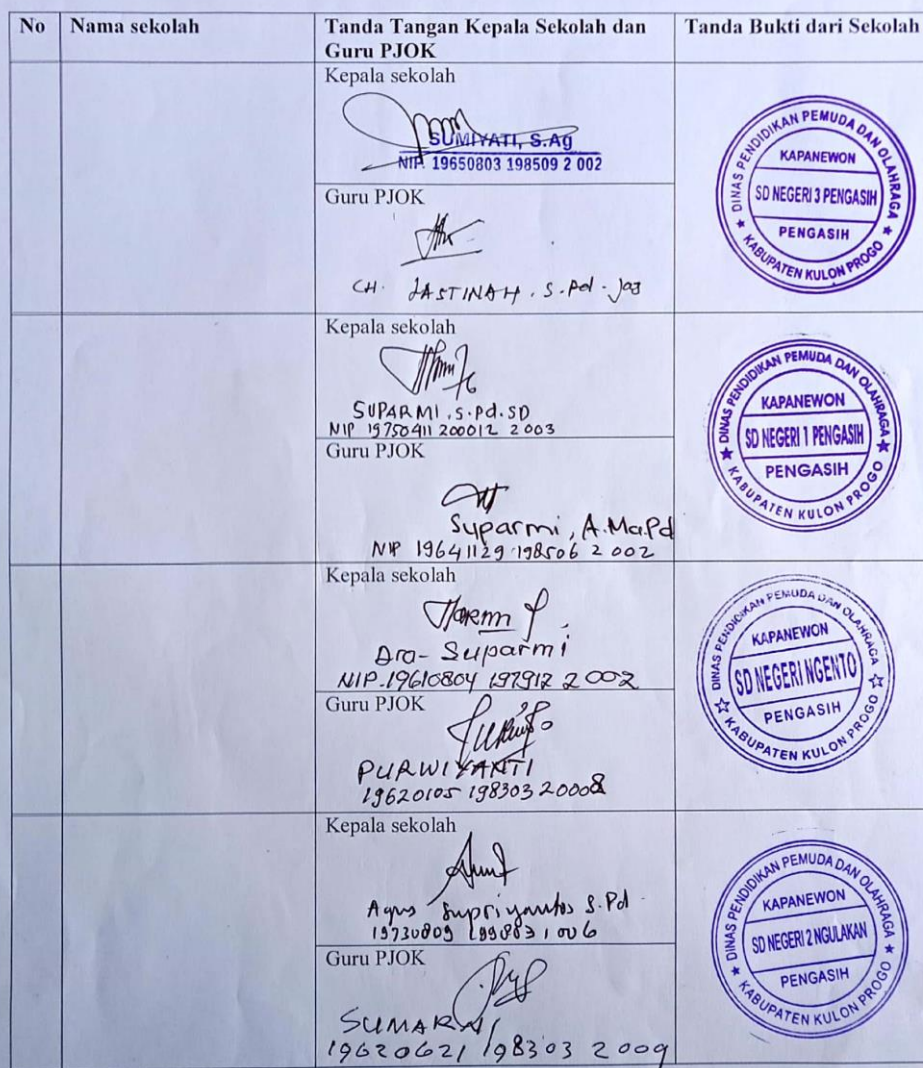 No Nama sekolah Tanda Tangan Kepala Sekolah dan Guru PJOK Tanda Bukti dari Sekolah
Kepala sekolah
SUMIYATI, S.Ag
NIP. 19650803 198509 2 002
Guru PJOK
CH. JASTINAH. S.Pd.Jas
DINAS PENDIDIKAN PEMUDA DAN OLAHRAGA
KAPANEWON
SD NEGERI 3 PENGASIH
PENGASIH
KABUPATEN KULON PROGO
Kepala sekolah
SUPARMI.S.Pd.SD
NIP 19750411 200012 2 003
Guru PJOK
Suparmi, A.Ma.Pd
NIP 19641129 198506 2 002
DINAS PENDIDIKAN PEMUDA DAN OLAHRAGA
KAPANEWON
SD NEGERI 1 PENGASIH
PENGASIH
KABUPATEN KULON PROGO
Kepala sekolah
Dra- Suparmi
NIP.19610804 197912 2 002
Guru PJOK
PURWIYANTI
19620105 198303 20008
DINAS PENDIDIKAN PEMUDA DAN OLAHRAGA
KAPANEWON
SD NEGERI NGENTO
PENGASIH
KABUPATEN KULON PROGO
Kepala sekolah
Agus Supriyanto S.Pd
19730809
Guru PJOK
SUMARNI
19620621 198303 2 009
DINAS PENDIDIKAN PEMUDA DAN OLAHRAGA
KAPANEWON
SD NEGERI 2 NGULAKAN
PENGASIH
KABUPATEN KULON PROGO